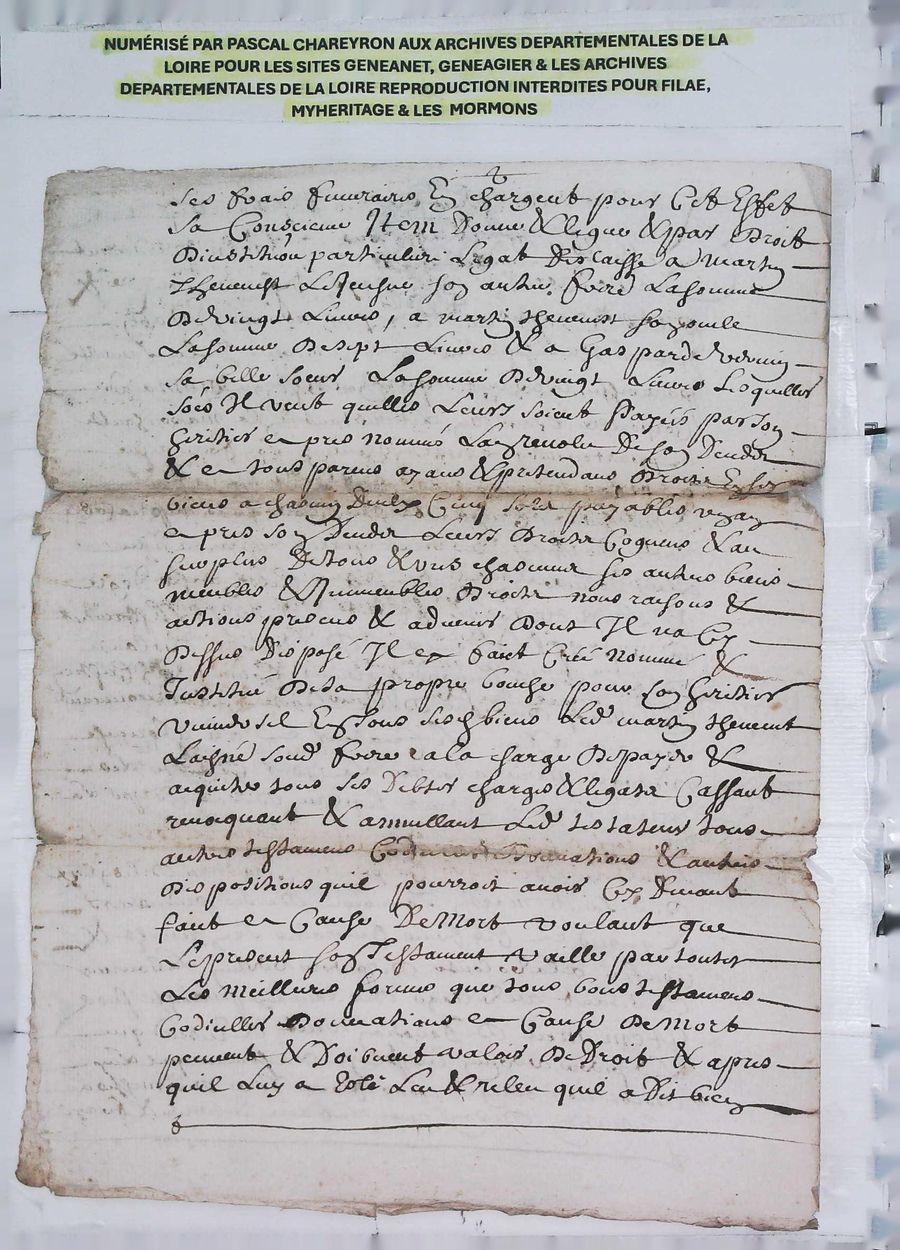 NUMÉRISÉ PAR PASCAL CHAREYRON AUX ARCHIVES DEPARTEMENTALES DE LA
LOIRE POUR LES SITES GENEANET, GENEAGIER & LES ARCHIVES
DEPARTEMENTALES DE LA LOIRE REPRODUCTION INTERDITES POUR FILAE,
MYHERITAGE & LES MORMONS
ses frais funeraires En chargent pour Cet Effet
sa Conscience Item Donne & legue & par Droit
Dinstitution particuliere Legat Delaisse a martin
thevenet Le jeusne son autre frere La somme
De vingt Livres, a martin thevenet son oncle
La somme De sept Livres & a Gasparde
sa belle soeur La somme De vingt Livres Lesquelles
Il veut quelles Leurs soient payés par son
heritier e pres nommé La Son Deceds
& e tous parens ayans & pretendans Droits En ses
biens a chacun Deulx Cinq sols payables
e pres son Deceds Leurs Droits Cogneus & au
surplus De tous & uns chacuns ses autres biens
meubles & Immeubles Droits noms raisons &
actions presens & advenirs Dont Il na Cy
Dessus Disposé Il e faict Creé nommé &
Institué De sa propre bouche pour son heritier
universel En tous sesd biens Led martin thevenet
Laisné sond frere a la charge De payer &
aquiter tous ses Debtes charges & legats Cassant
revocquant & annullant Led testateur tous
autres testamens Codicilles Donnations & autres
Dispositions quil pourroit avoir Cy Devant
faict e Cause De Mort voulant que
Le present son Testament vaille par toutes
Les meilleures formes que tous bons testamens
Codicilles Donnations e Cause De Mort
peuvent & Doibvent valoir De Droit & apres
quil Luy a Esté Leu & releu quil a Dit bien